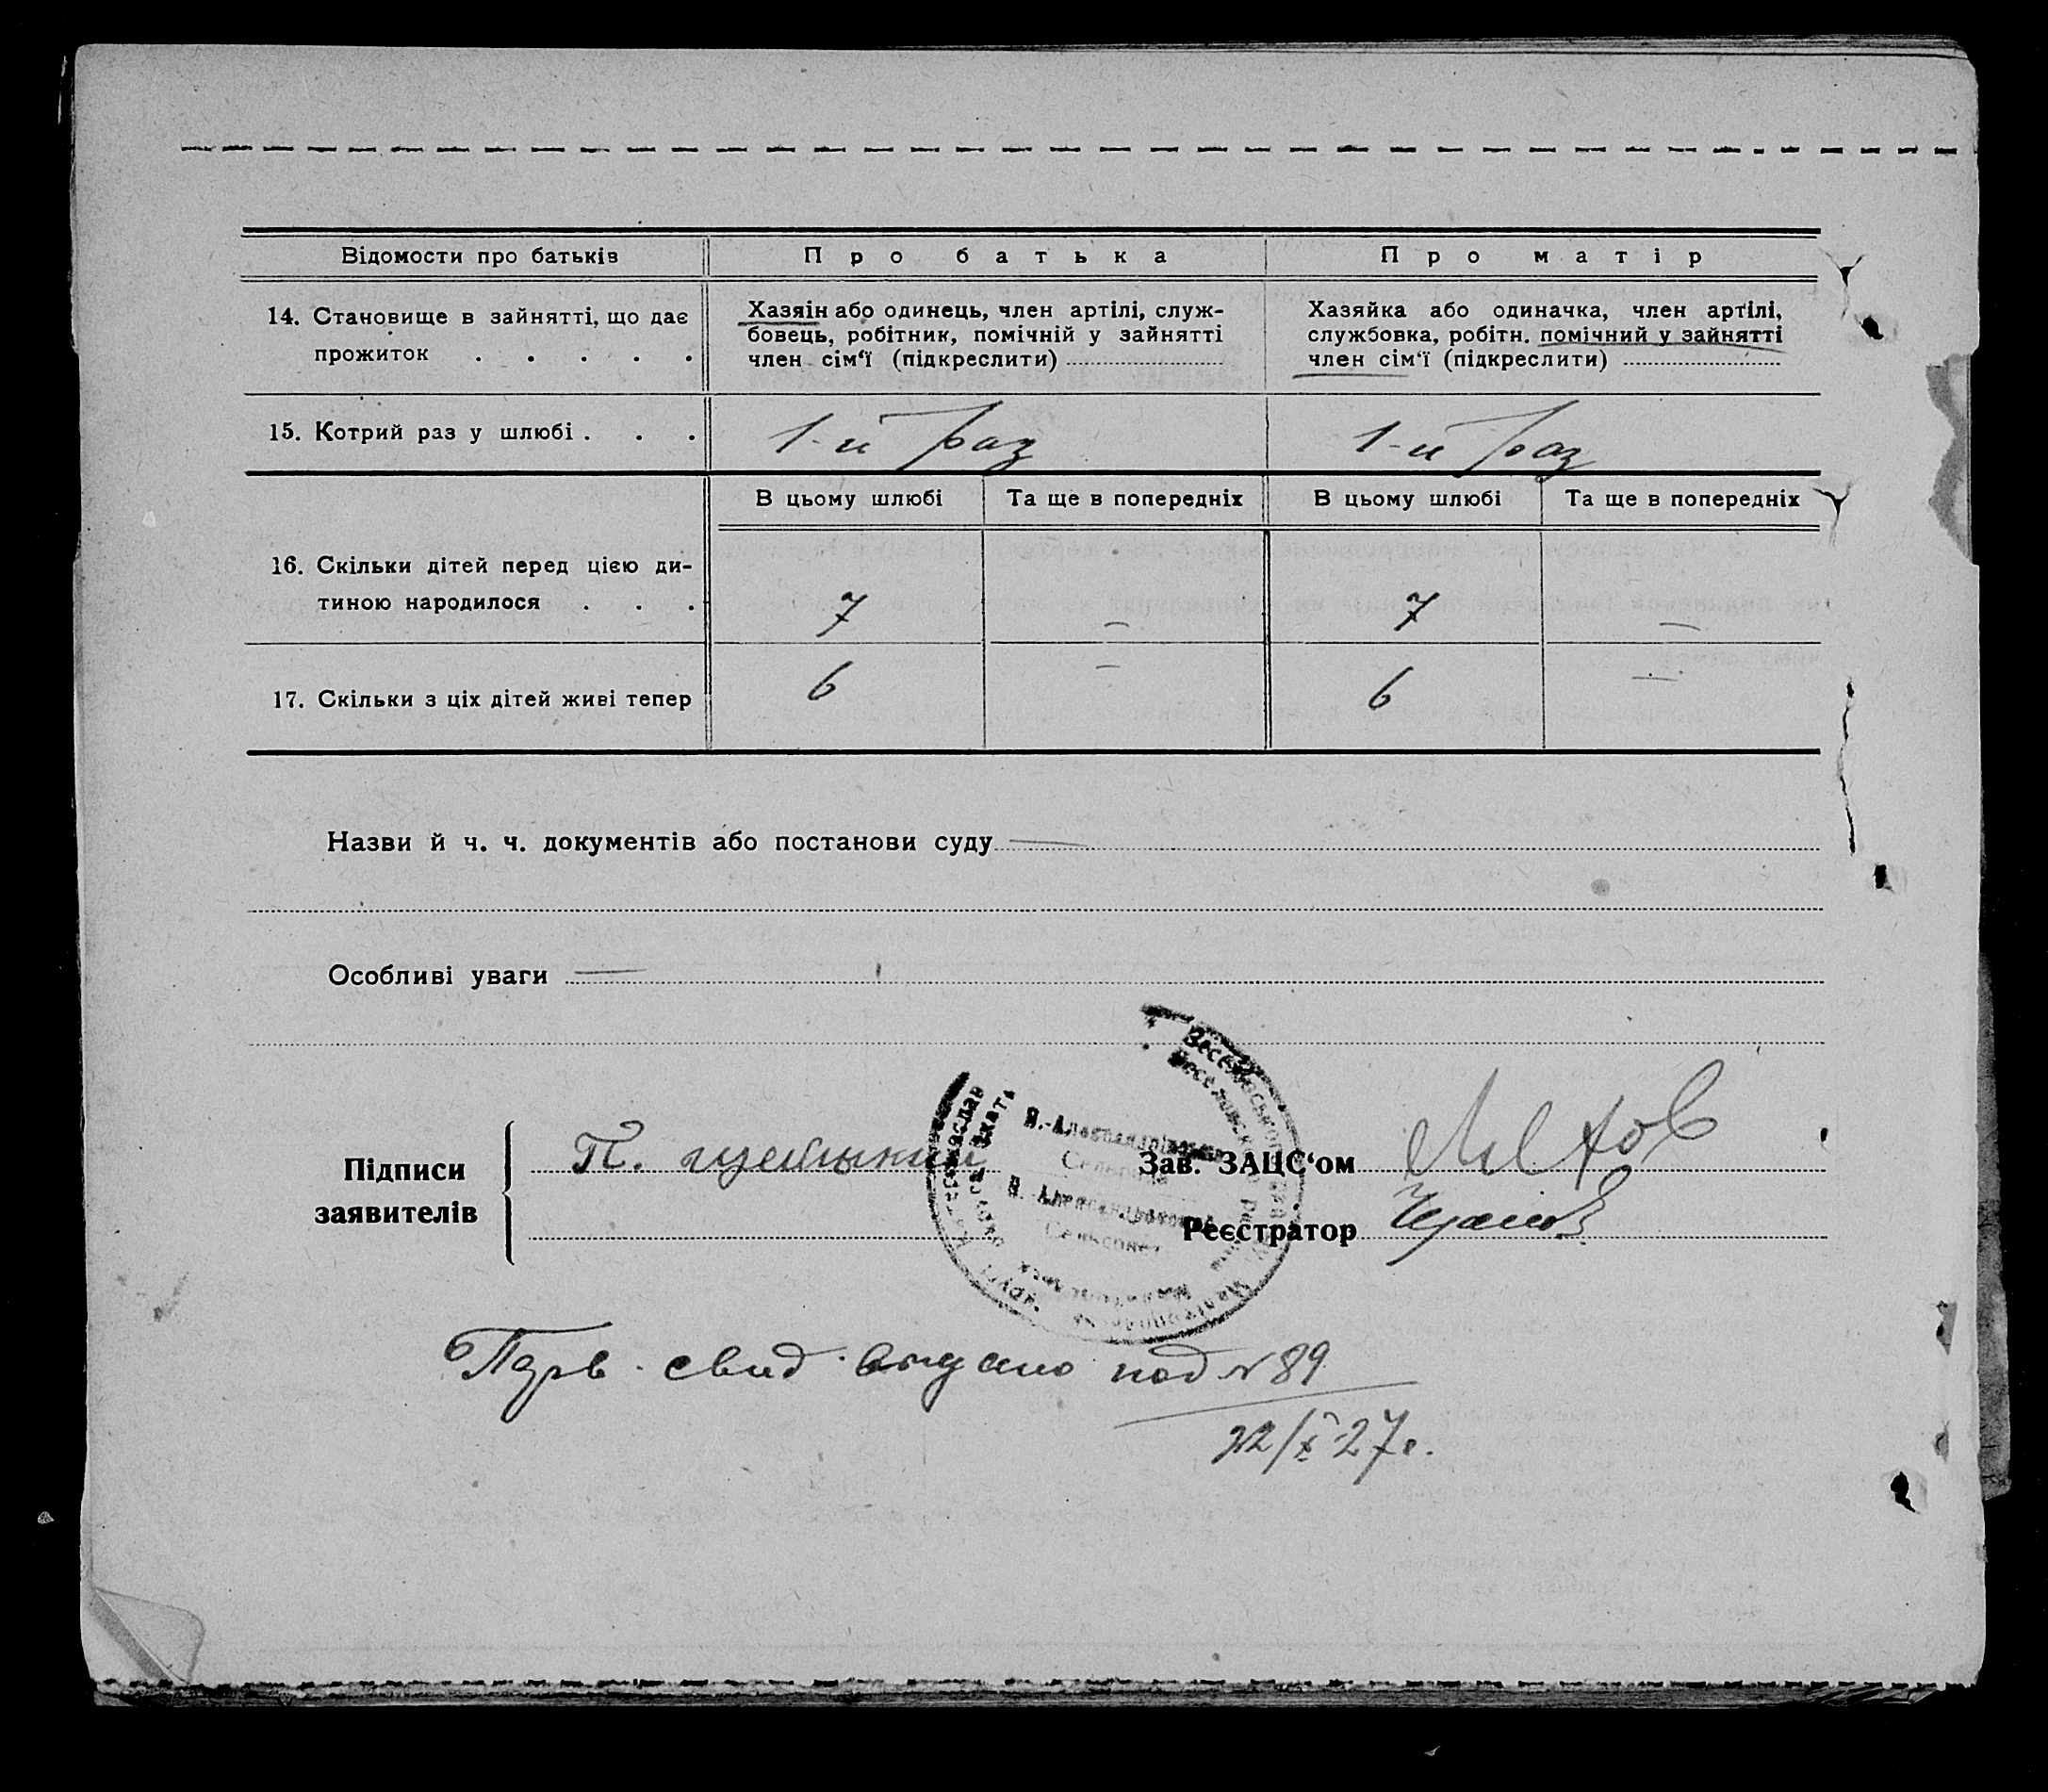 Відомости про батьків
Про батька
Про матір
14. Становище в зайнятті, що дає
прожиток . . . . .
Хазяін або одинець, член артілі, служ-
бовець, робітник, помічній у зайнятті
член сім‘ї (підкреслити)
Хазяйка або одиначка, член артілі,
службовка, робітн. помічний у зайнятті
член сім‘ї (підкреслити)
15. Котрий раз у шлюбі . . .
1-й раз
1-й раз
В цьому шлюбі
Та ще в попередніх
В цьому шлюбі
Та ще в попередніх
16. Скільки дітей перед цією ди-
тиною народилося . . .
7
–
7
–
17. Скільки з ціх дітей живі тепер
6
–
6
–
Назви й ч. ч. документів або постанови суду —
Особливі уваги —
Підписи
заявителів
П.
Зав. ЗАЦС‘ом
Реєстратор
Н.-Александрівська
Н. Александровский
Сельсовет
свид. выдано под № 89
22/X 27г.